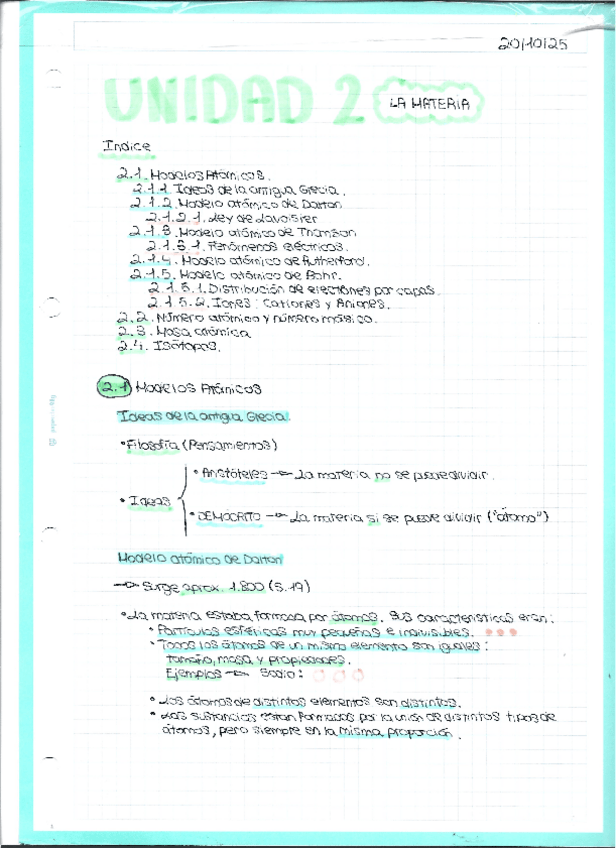 20/10/25
UNIDAD 2 LA MATERIA
Indice
2.1. Modelos Atómicos.
2.1.1 Ideas de la antigua Grecia.
2.1.2. Modelo atómico de Dalton
2.1.2.1. Ley de Lavoisier
2.1.3. Modelo atómico de Thomson
2.1.3.1. Fenómenos eléctricos.
2.1.4. Modelo atómico de Rutherford.
2.1.5. Modelo atómico de Bohr.
2.1.5.1. Distribución de electrones por capas.
2.1.5.2. Iones: Cationes y Aniones.
2.2. Número atómico y número másico.
2.3. Masa atómica
2.4. Isótopos.
2.1 Modelos Atómicos
Ideas de la antigua Grecia.
• Filosofía (Pensamientos)
• Aristóteles → La materia no se puede dividir.
• Ideas
• DEMÓCRITO → La materia si se puede dividir ("átomo")
Modelo atómico de Dalton
→ Surge aprox. 1.800 (S.19)
• La materia estaba formada por átomos. Sus características eran:
• Partículas esféricas muy pequeñas e indivisibles.
• Todos los átomos de un mismo elemento son iguales:
tamaño, masa y propiedades.
Ejemplos → Sodio:
• Los átomos de distintos elementos son distintos.
• Las sustancias están formadas por la unión de distintos tipos de
átomos, pero siempre en la misma proporción.